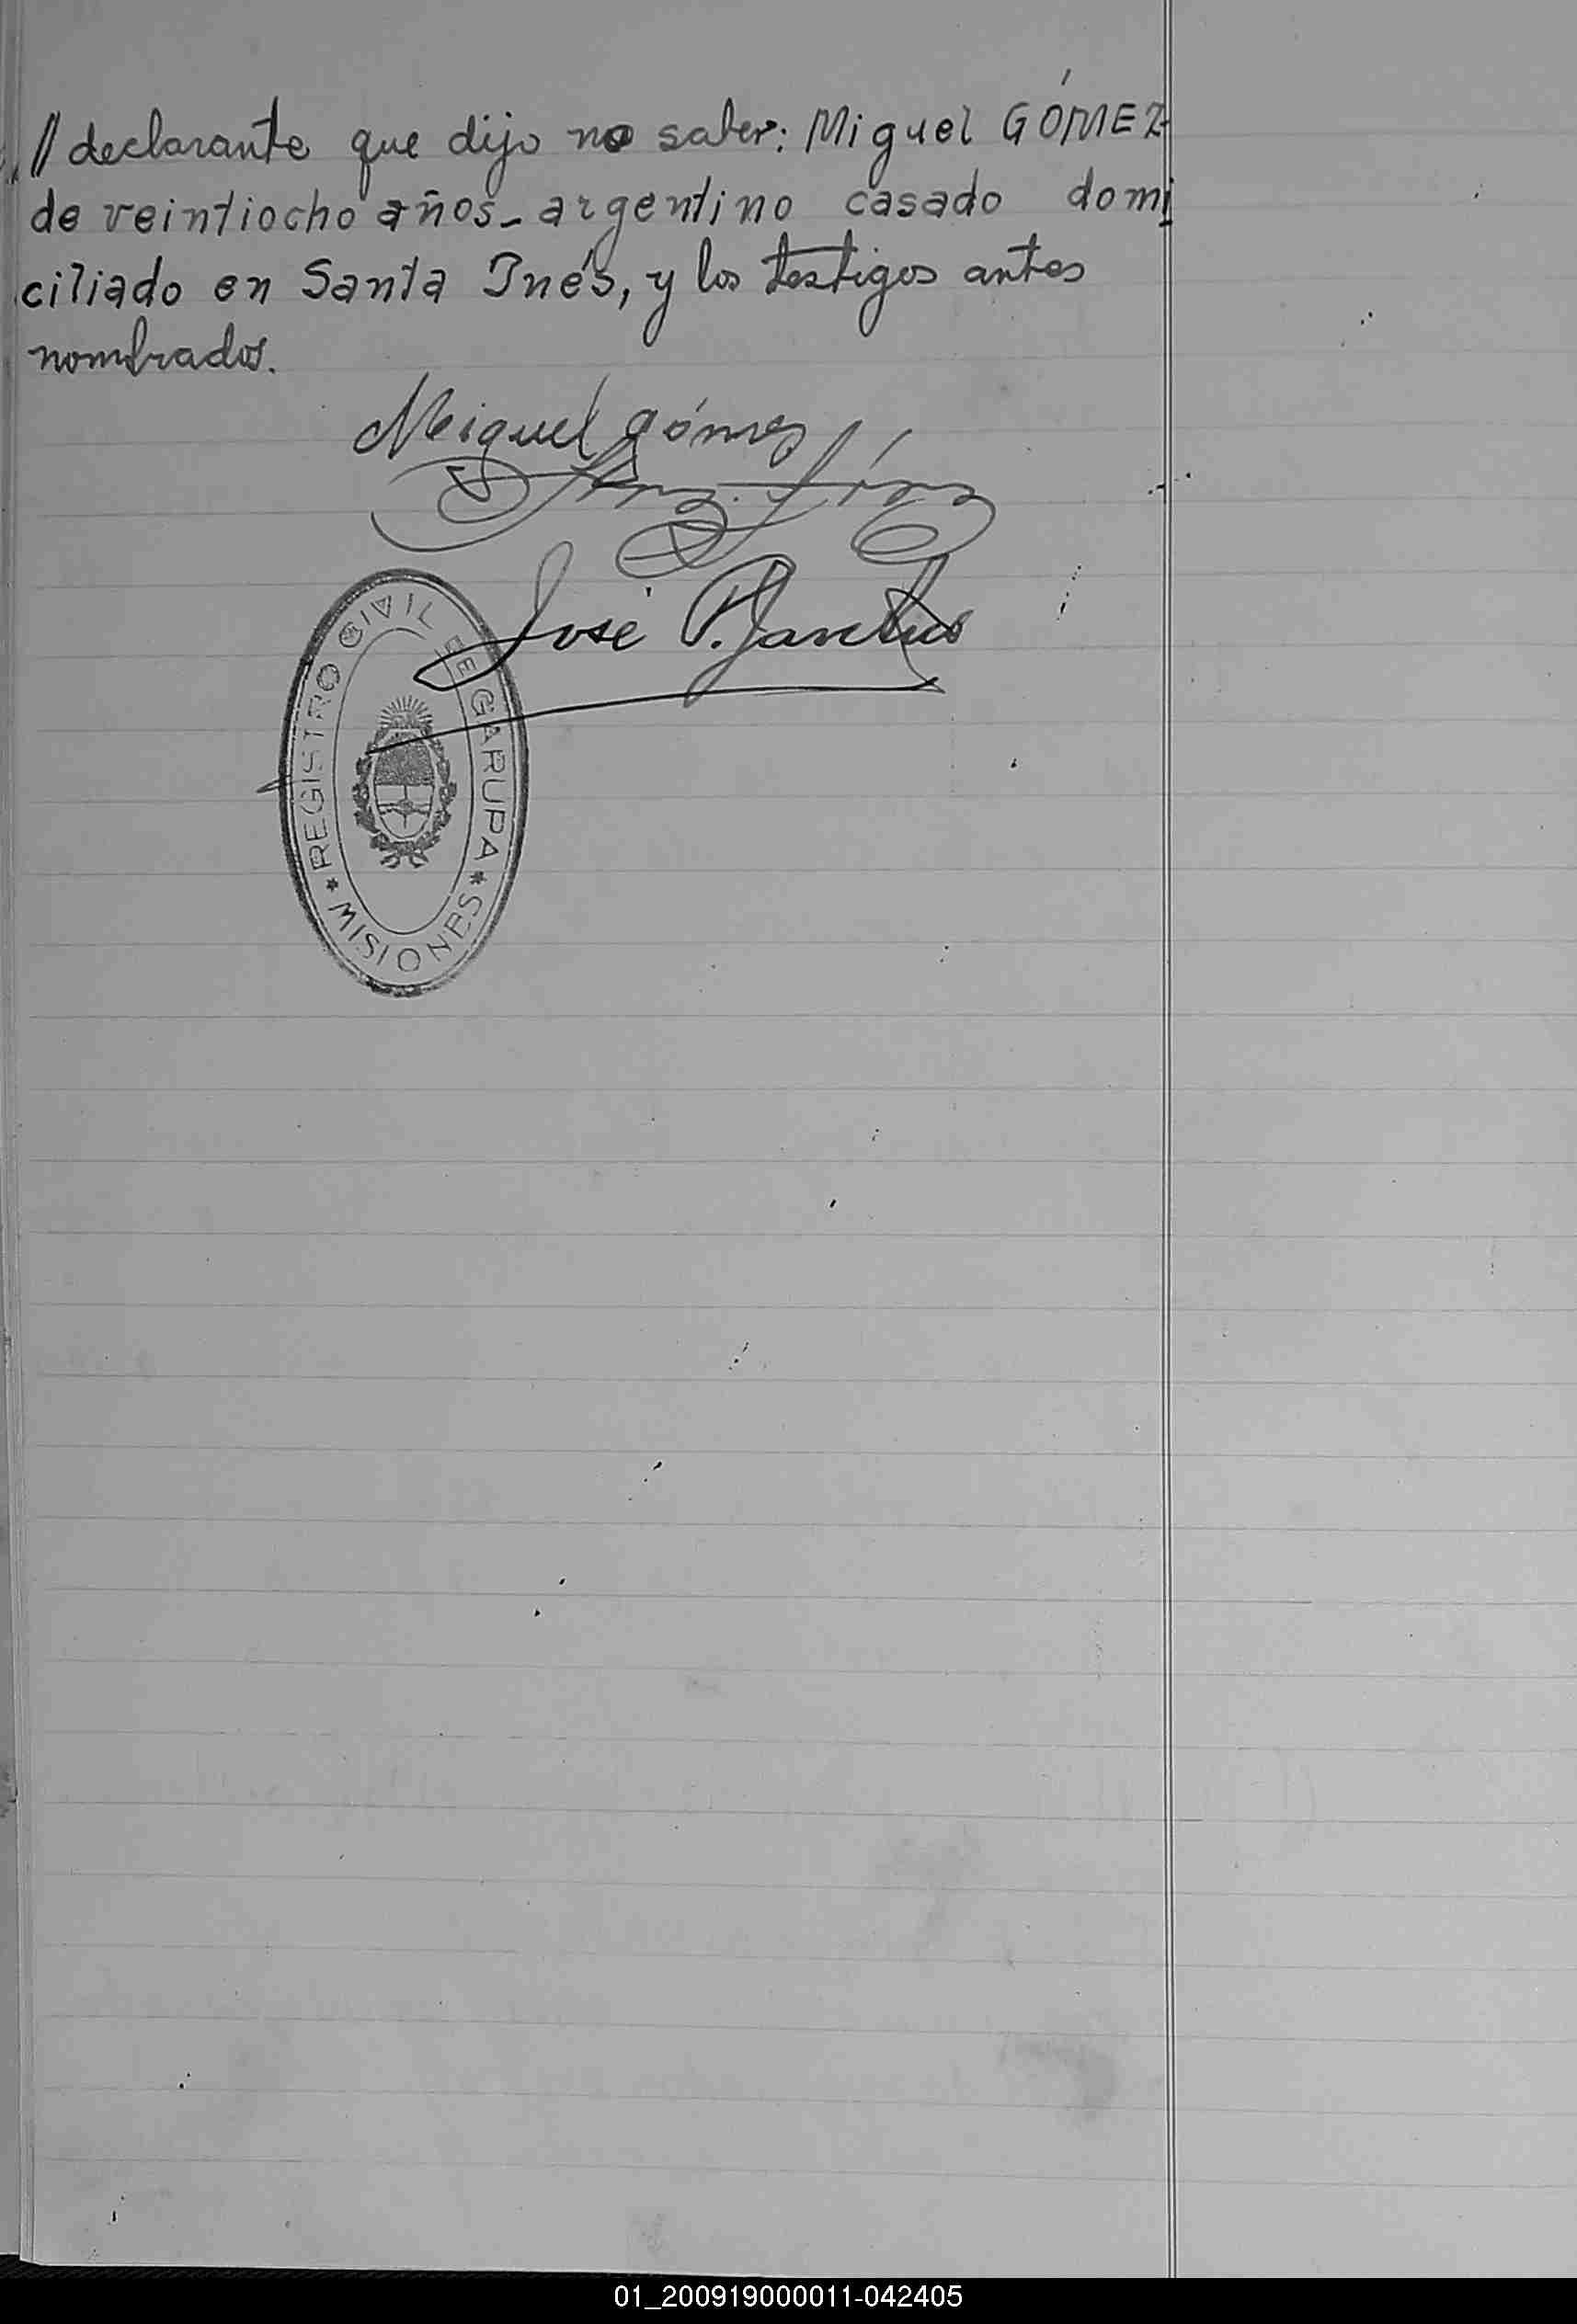 // declarante que dijo no saber: Miguel GÓMEZ
de veintiocho años - argentino casado domi
ciliado en Santa Inés, y los testigos antes
nombrados.
Miguel Gómez
José P.
REGISTRO CIVIL DE GARUPA
* MISIONES *
01_200919000011-042405